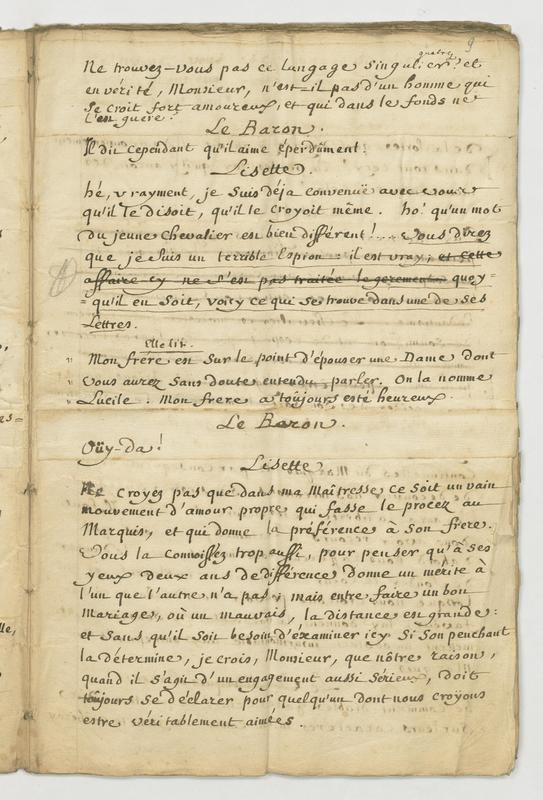 9
Ne trouvez-vous pas ce langage singulier? et
en vérité, Monsieur, n'est-il pas d'un homme qui
se croit fort amoureux, et qui dans le fonds ne
l'est guere?
Le Baron.
Il dit cependant qu'il aime éperdûment.
Lisette.
hé, vrayment, je suis déja convenuë avec vous
qu'il le disoit, qu'il le croyoit même. ho! qu'un mot
du jeune Chevalier est bien différent!... Vous direz
que je suis un terrible Espion: il est vray; et cette
affaire cy ne s'est pas traitée legerement quoy=
=qu'il en soit, voicy ce qui se trouve dans une de ses
Lettres.
Elle lit.
" Mon frére est sur le point d'épouser une Dame dont
" vous aurez sans doute entendu parler. On la nomme
" Lucile. Mon frere a toûjours esté heureux.
Le Baron.
Oüy-da!
Lisette
Ne croyez pas que dans ma Maîtresse ce soit un vain
mouvement d'amour propre qui fasse le procez au
Marquis, et qui donne la préférence à son frere.
Vous la connoissez trop aussi, pour penser qu'à ses
yeux deux ans de différence donne un mérite à
l'un que l'autre n'a pas; mais entre faire un bon
Mariage, où un mauvais, la distance est grande:
et sans qu'il soit besoin d'éxaminer icy si son penchant
la détermine, je crois, Monsieur, que nôtre raison,
quand il s'agit d'un engagement aussi serieux, doit
toûjours se déclarer pour quelqu'un dont nous croyons
estre véritablement aimées.